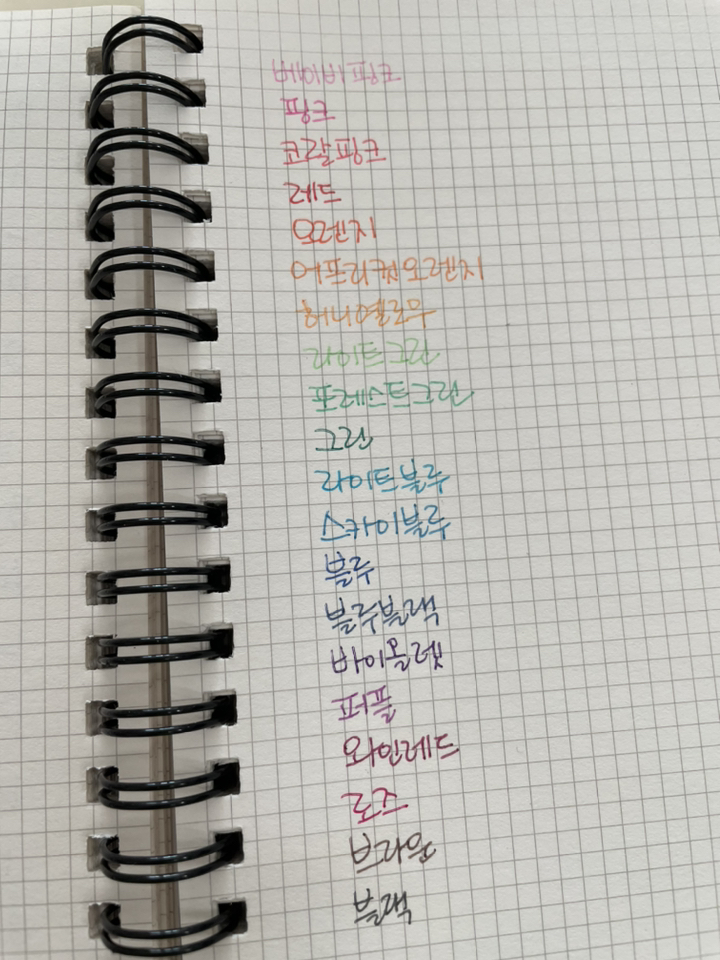 베이비핑크
핑크
코랄핑크
레드
오렌지
어프리컷오렌지
허니옐로우
라이트그린
포레스트그린
그린
라이트블루
스카이블루
블루
블루블랙
바이올렛
퍼플
와인레드
로즈
브라운
블랙